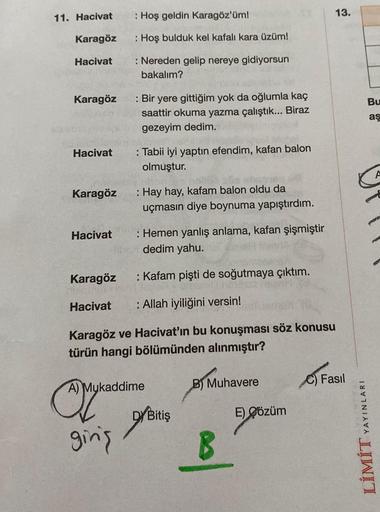 11. Hacivat : Hoş geldin Karagöz'üm!
Karagöz : Hoş bulduk kel kafalı kara üzüm!
Hacivat : Nereden gelip nereye gidiyorsun
bakalım?
Karagöz : Bir yere gittiğim yok da oğlumla kaç
saattir okuma yazma çalıştık... Biraz
gezeyim dedim.
Hacivat : Tabii iyi yaptın efendim, kafan balon
olmuştur.
Karagöz : Hay hay, kafam balon oldu da
uçmasın diye boynuma yapıştırdım.
Hacivat : Hemen yanlış anlama, kafan şişmiştir
dedim yahu.
Karagöz : Kafam pişti de soğutmaya çıktım.
Hacivat : Allah iyiliğini versin!
Karagöz ve Hacivat'ın bu konuşması söz konusu
türün hangi bölümünden alınmıştır?
A) Mukaddime B) Muhavere C) Fasıl
D) Bitiş E) Çözüm
giriş
B
13.
Bu
aş
A
LİMİT YAYINLARI